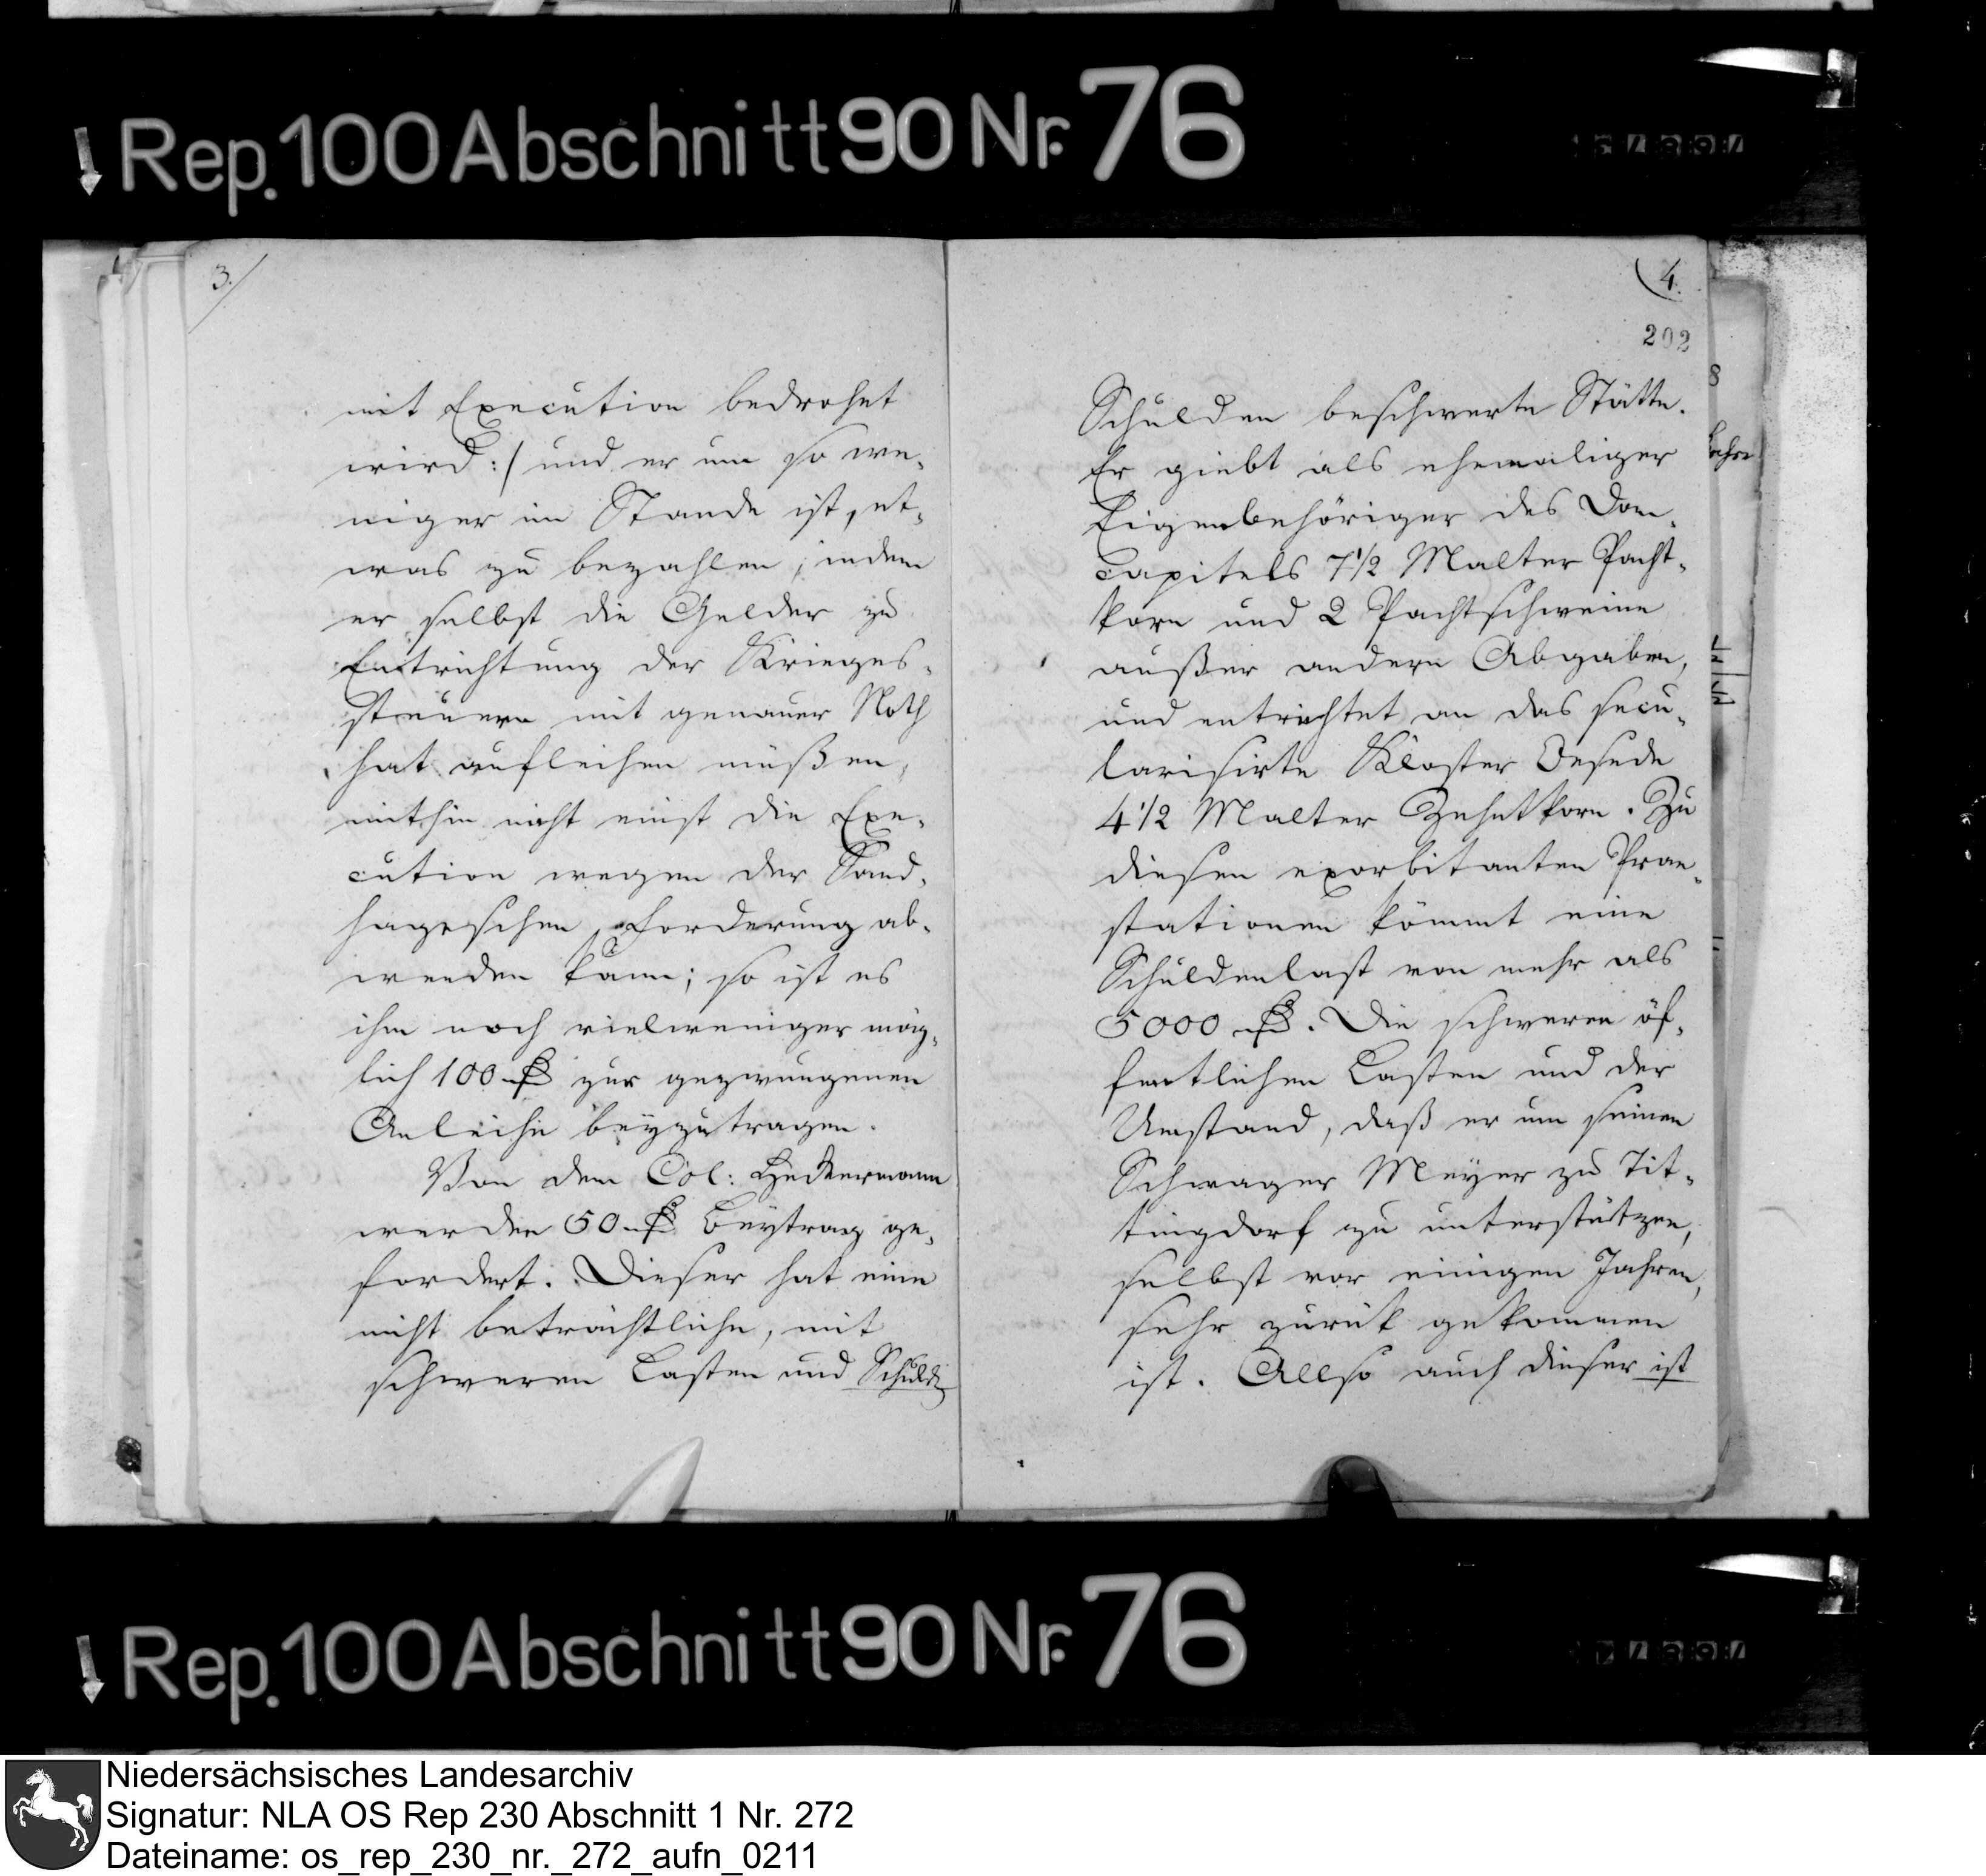 Rep. 100 Abschnitt 90 Nr. 76
3.
mit Execution bedrohet
wird :/ und er um so we-
niger im Stande ist, et-
was zu bezahlen, indem
er selbst die Gelder zu
Entrichtung der Krieges-
steuern mit genauer Noth
hat aufleihen müßen,
mithin nicht einst die Exe-
cution wegen der Sand-
hageschen Forderung ab-
wenden kann; so ist es
ihm noch vielweniger mög-
lich 100 rß zur gezwungenen
Anleihe beyzutragen.
Von dem Col: Heckermann
werden 50 rß Beytrag ge-
fordert. Dieser hat eine
nicht beträchtliche, mit
schweren Lasten und Schuld
4.
202
Schulden beschwerte Stätte.
Er giebt als ehemaliger
Eigenbehöriger des Dom-
capitels 7 1/2 Malter Pacht-
korn und 2 Pachtschweine
außer andern Abgaben,
und entrichtet an das secu-
larisirte Kloster Oesede
4 1/2 Malter Zehntkorn. Zu
diesen exorbitanten Prae-
stationen kömmt eine
Schuldenlast von mehr als
5000 rß. Die schweren öf-
fentlichen Lasten und der
Umstand, daß er um seinen
Schwager Meyer zu Tit-
tingdorf zu unterstützen,
selbst vor einigen Jahren,
sehr zurük gekommen
ist. Allso auch dieser ist
Rep. 100 Abschnitt 90 Nr. 76
Niedersächsisches Landesarchiv
Signatur: NLA OS Rep 230 Abschnitt 1 Nr. 272
Dateiname: os_rep_230_nr._272_aufn_0211